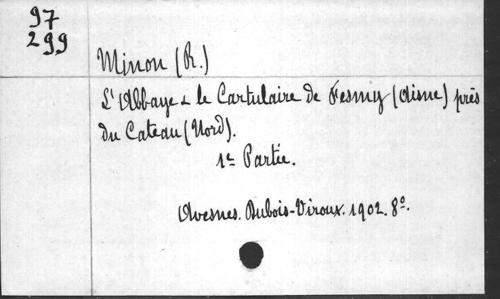 97
299
Minon (R.)
L'Abbaye & le Cartulaire de Fesmy (Aisne) près
du Cateau (Nord).
1e Partie.
Avesnes. Dubois-Viroux. 1902. 8º.